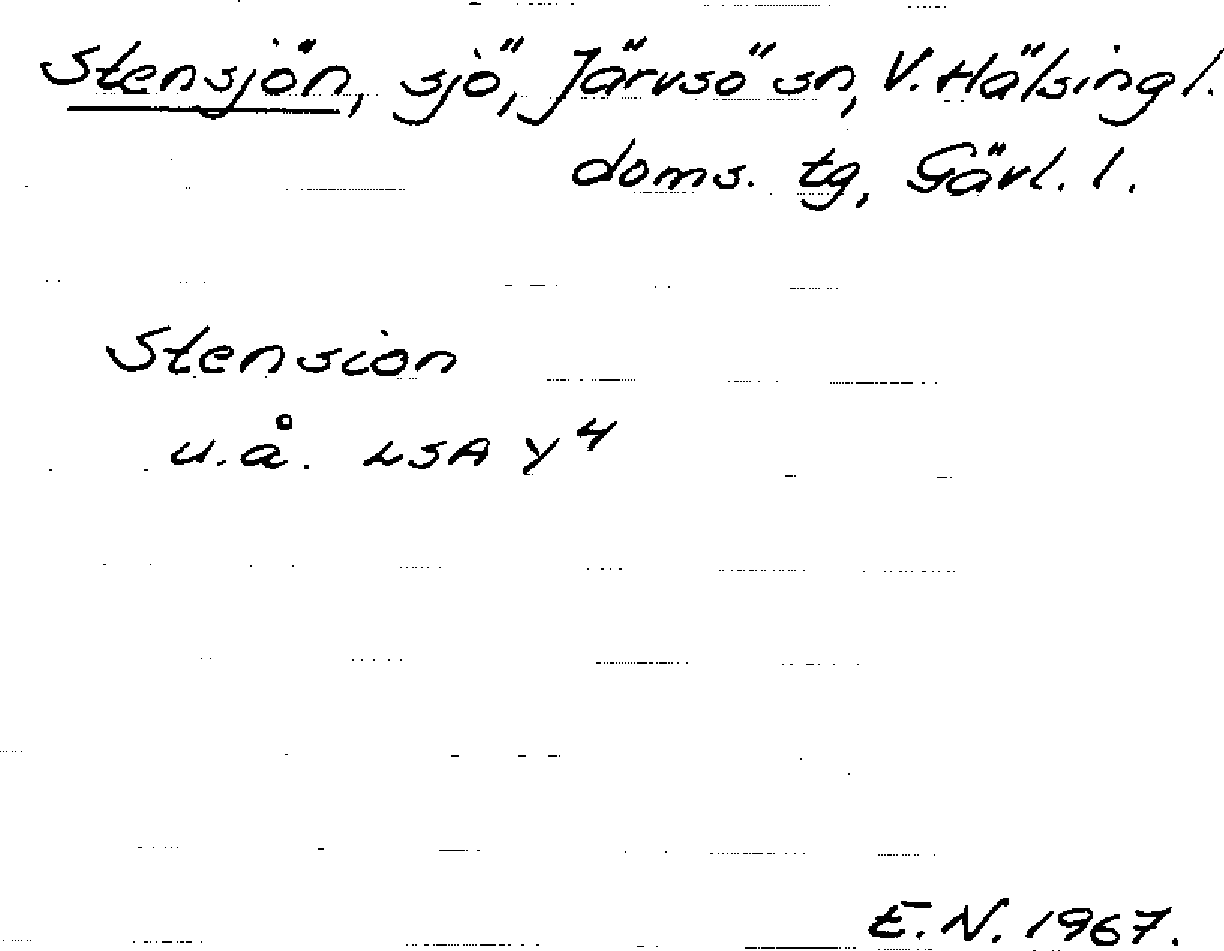 Stensjön, sjö, Järvsö sn, V. Hälsingl.
doms. tg, Gävl. l.
Stension
u.å. LSA Y4
E.N. 1967.